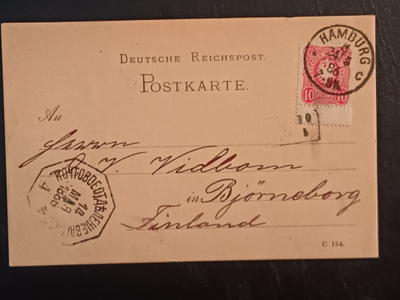 DEUTSCHE REICHSPOST.
POSTKARTE.
HAMBURG
C
10 10
An
Herrn
C. V. Vidbom
in Björneborg
Finland
C. 154.